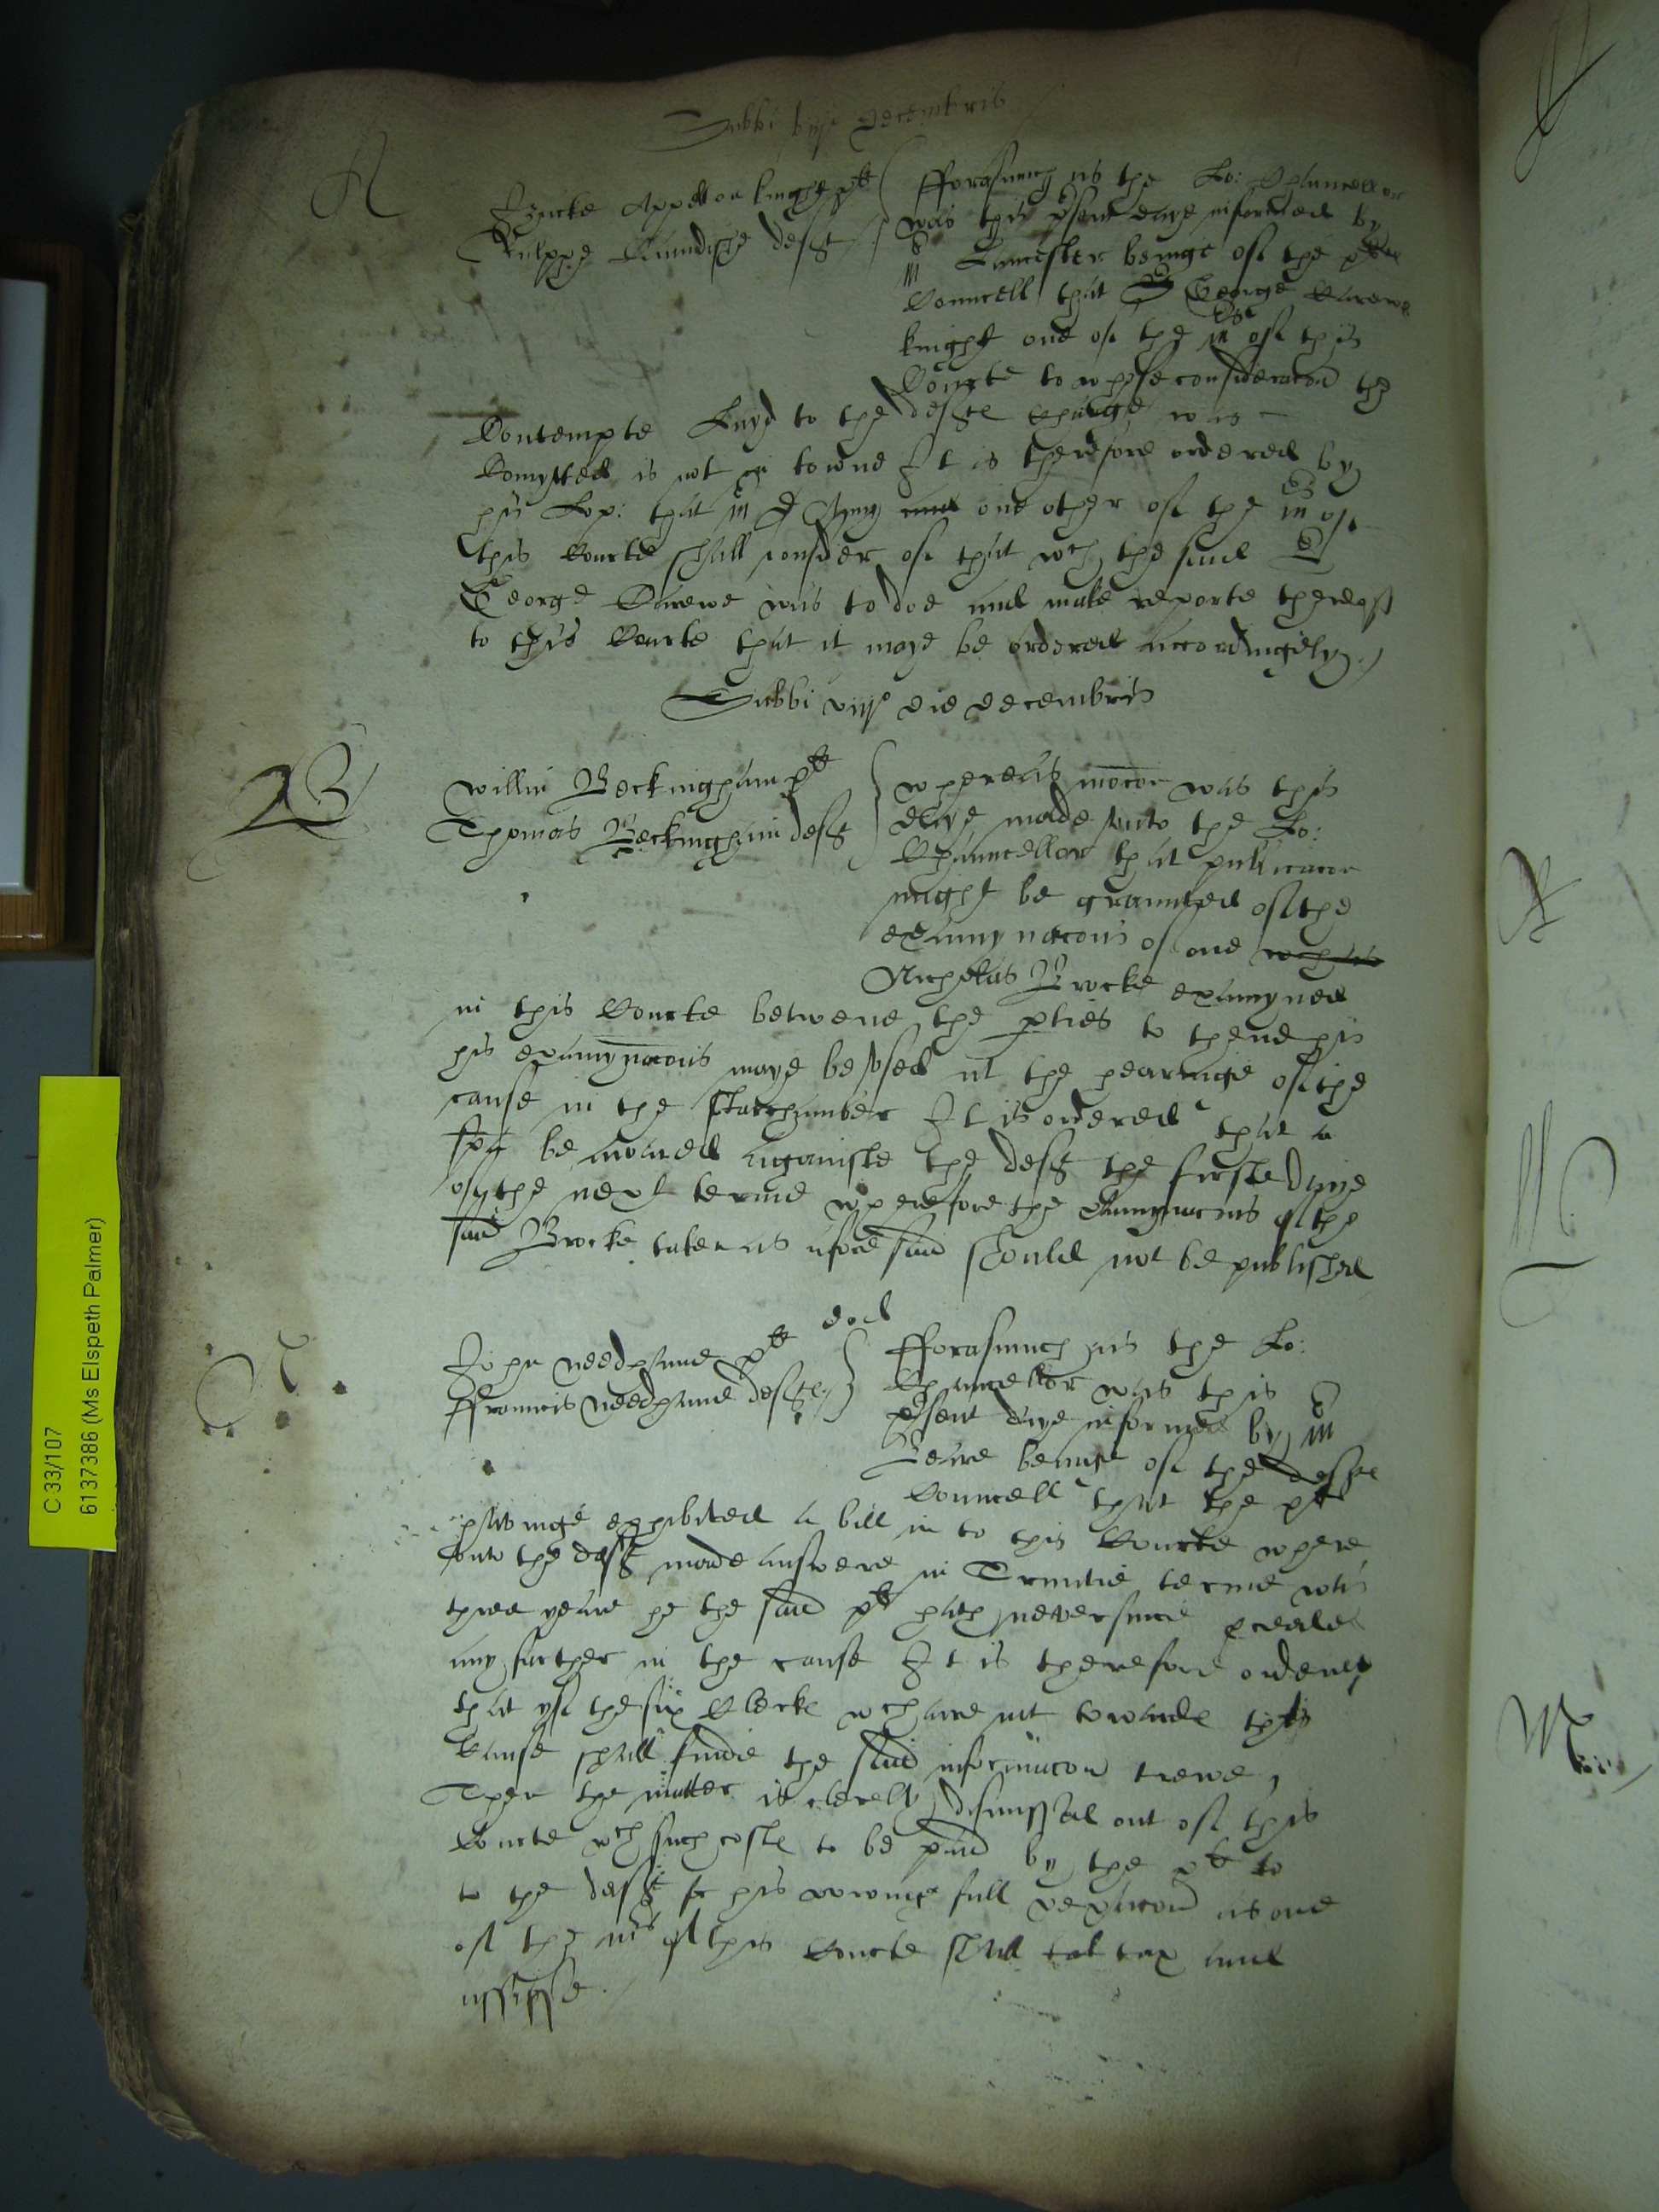 Sabbi viijo decembris
A
Isacke Appelton knight plt
Raphe Caundishe deft
fforasmuch as the Lo: Chauncellor
was this psent daye informed by
mr Lancaster beinge of the pltes
Councell that Sr George Carewe
knight one of the mrs of this
Courte to whose consideracon the
Contempte Layd to the deftes charge was
Comytted is not in towne It is therefore ordered by
his Lop: that mr D Amy and one other of the mrs of
this Courte shall consider of that wch the said Sr
George Carewe was to doe and make reporte thereof
to this Courte that it maye be ordered accordingely
Sabbi viijo die decembris
B
Willm Beckingham plt
Thomas Beckingham deft
Whereas mocon was this
daye made unto the Lo:
Chauncellor that publicacon
might be graunted of the
examynacons of one wch is
Nicholas Brocke examyned
in this Courte betwene the pties to thend his
his examynacons maye be used at the hearinge of the
cause in the Starchamber It is ordered that a
spa be awarded againste the deft the firste daye
of the next terme wherefore the Examynacons of the
said Brocke taken as afore said should not be published
eod
N
John Needhame plt
ffrauncis Needhame deftes
fforasmuch as the Lo:
Chauncellor was this
psent daye informed by mr
Beare beinge of the deftes
Councell that the plt
havinge exhibited a bill in to this Courte where
unto the deft made answere in Trinitie terme was
three yeare he the said plt hath never since pceeded
any further in the cause It is therefore ordered
that yf the six Clerkes wch are att towardes this
Cause shall finde the said informacon trewe,
Then the matter is clerely dismissed out of this
Courte wth such costes to be paid by the plt to
to the deft for his wrongefull vexacon as one
of the mrs of this Courte shall tat tax and
assesse
C 33/107
6137386 (Ms Elspeth Palmer)